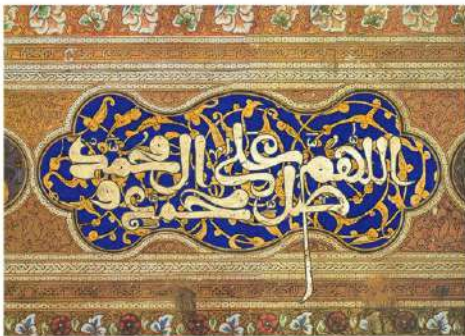 اللهم صل على محمد و ال محمد